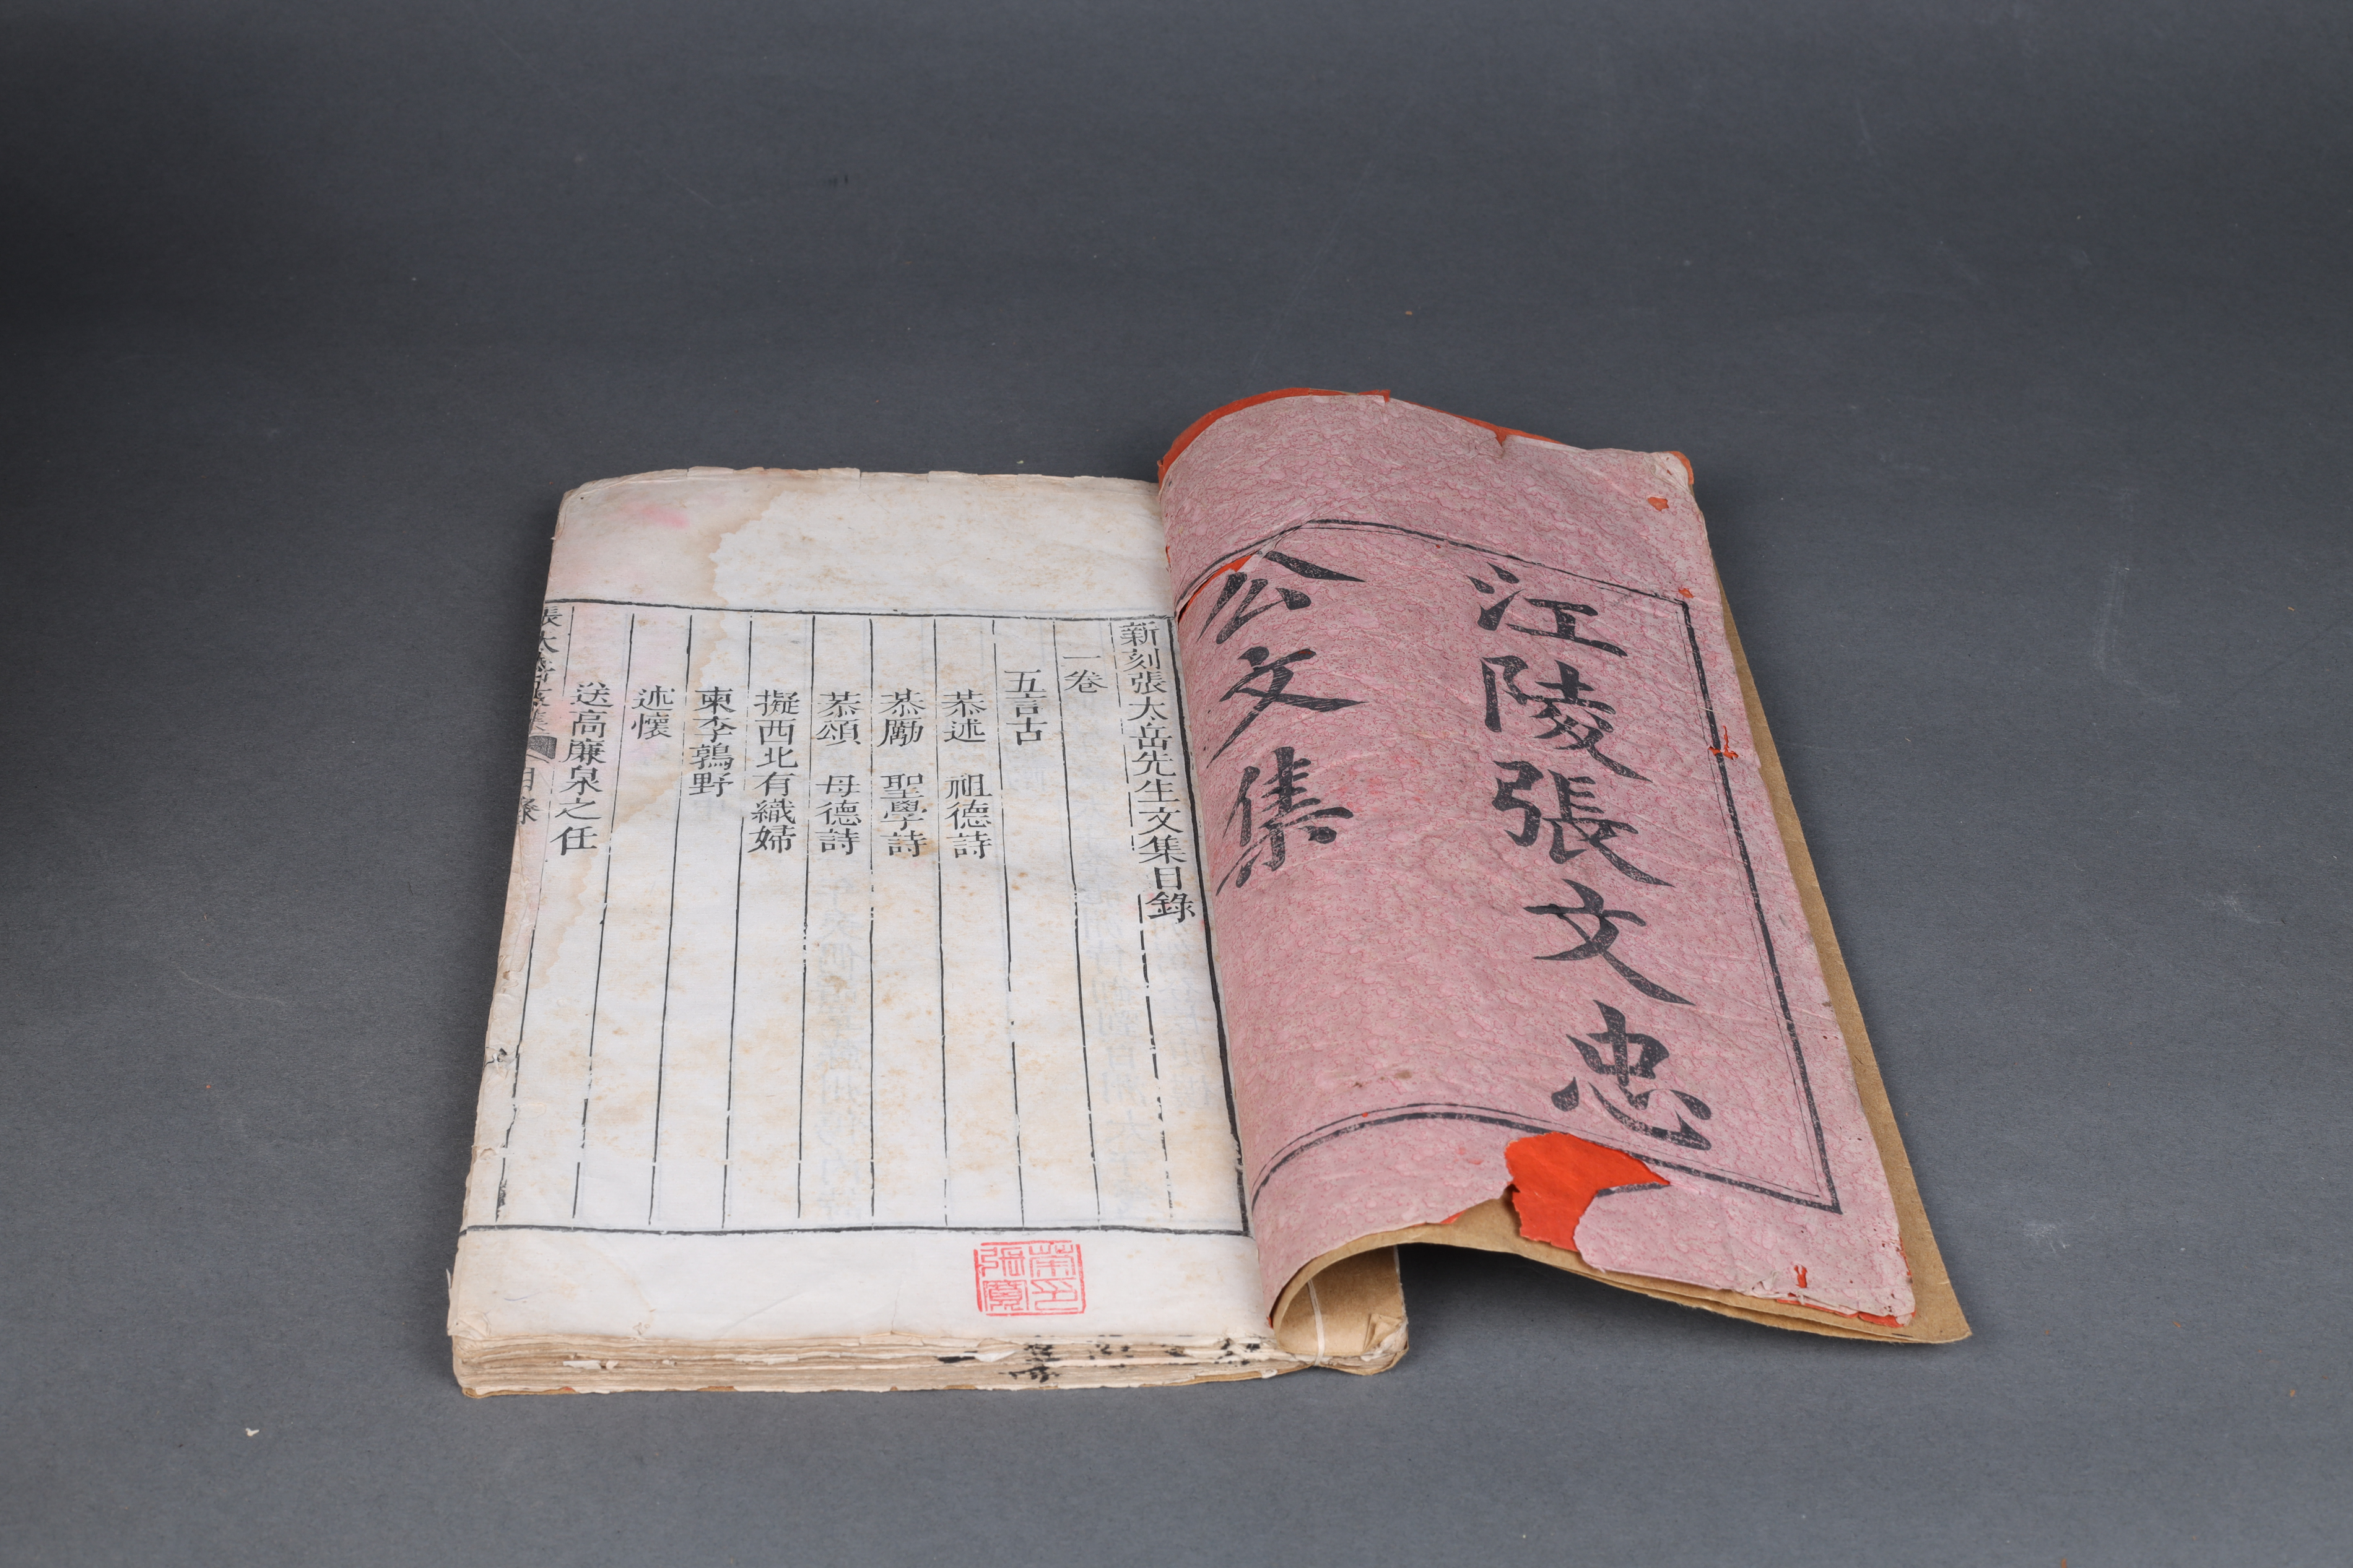 江陵張文忠
公文集
新刻張太岳先生文集目錄
一卷
五言古
恭述　祖德詩
恭勵　聖學詩
恭頌　母德詩
擬西北有織婦
柬李鶉野
述懷
送高廉泉之任
目錄